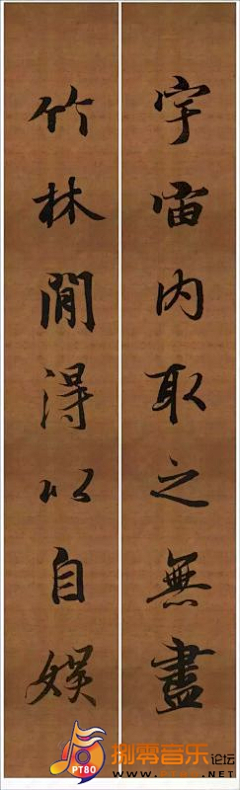 宇宙内取之無盡
竹林間得以自娱
PT80
捌零音乐论坛